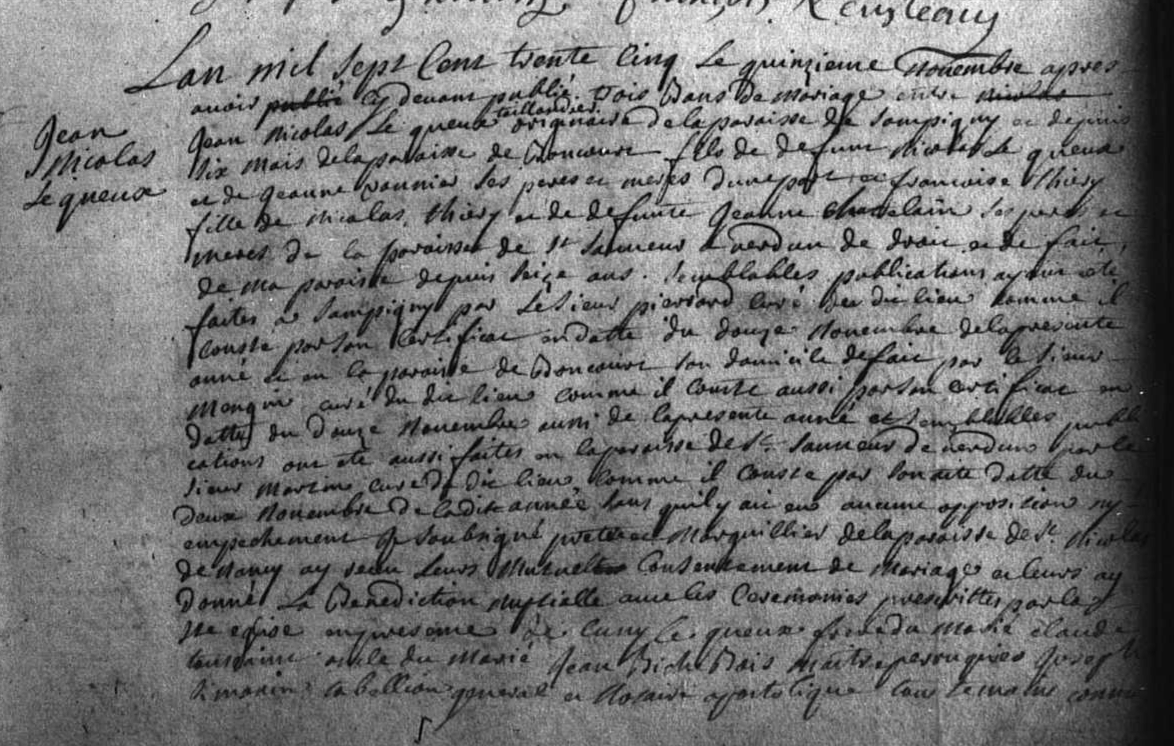 Jean
Nicolas
Le queux
Lan mil sept Cent trente Cinq Le quinzieme Novembre apres
avoir publié cy devant publié trois Bans de Mariage entre nicolas
taillandier
Jean Nicolas Le queux originaire de la paroisse de Sampigny et depuis
six mois de la paroisse de Boncourt fils de defunt Nicolas Le queux
et de Jeanne ses peres et meres dune part, et francoise thiery
fille de Nicolas thiery et de defunte Jeanne Chatelain ses peres et
meres de la paroisse de St Sauveur a verdun de droit et de fait
de ma paroisse depuis seize ans. Semblables publications ayant été
faites a Sampigny par Le Sieur pierrard Curé du dit lieu comme il
conste par son Certificat en datte du douze Novembre de la presente
anné et en la paroisse de Boncourt son domicile de fait par le Sieur
Mengin curé du dit lieu comme il conste aussi par son certificat en
datte du douze Novembre aussi de la presente anné et semblables publi
cations ont ete aussi faites en la paroisse de St Sauveur de verdun par le
Sieur Martin curé du dit lieu comme il conste par son datte du
deux Novembre de la dite année sans quil y ait eu aucune opposition ny
empechement Je Soubsigné pretre et Marguillier de la paroisse de St Nicolas
de Nancy ay receu Leurs Mutuel Consentement de Mariage et leurs ay
donné La Benediction Nuptielle avec les Ceremonies prescrittes par la
Ste eglise en presence de Cuny Le queux frere du Marié claude
oncle du Marié Jean Bois Maitre perruquier Joseph
Simonin tabellion general et Notaire apostolique tous temoins